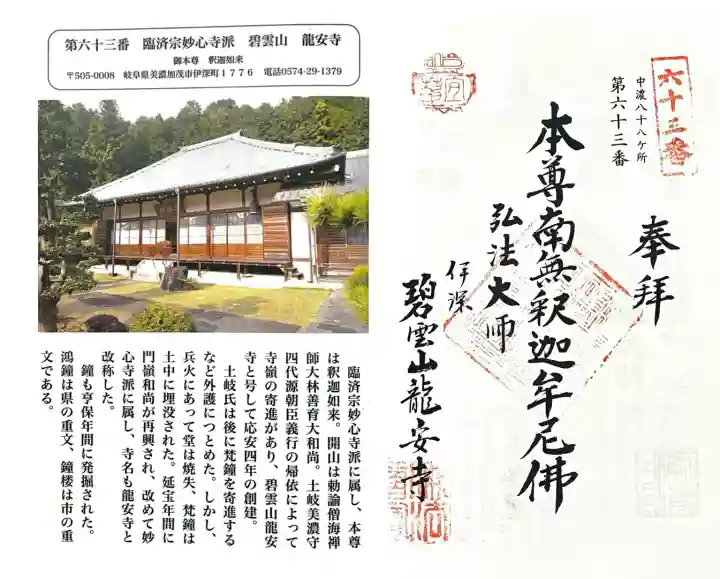 第六十三番 臨済宗妙心寺派 碧雲山 龍安寺
御本尊 釈迦如来
〒505-0008 岐阜県美濃加茂市伊深町1776 電話0574-29-1379
臨済宗妙心寺派に属し、本尊
は釈迦如来。開山は勅諭僧海禅
師大林善育大和尚。土岐美濃守
四代源朝臣義行の帰依によって
寺嶺の寄進があり、碧雲山龍安
寺と号して応安四年の創建。
土岐氏は後に梵鐘を寄進する
など外護につとめた。しかし、
兵火にあって堂は焼失、梵鐘は
土中に埋没された。延宝年間に
門嶺和尚が再興され、改めて妙
心寺派に属し、寺名も龍安寺と
改称した。
鐘も亨保年間に発掘された。
鴻鐘は県の重文、鐘楼は市の重
文である。
六十三番
中濃八十八ケ所
第六十三番
奉拜
本尊南無釈迦牟尼佛
弘法大师
伊深
碧雲山龍安寺